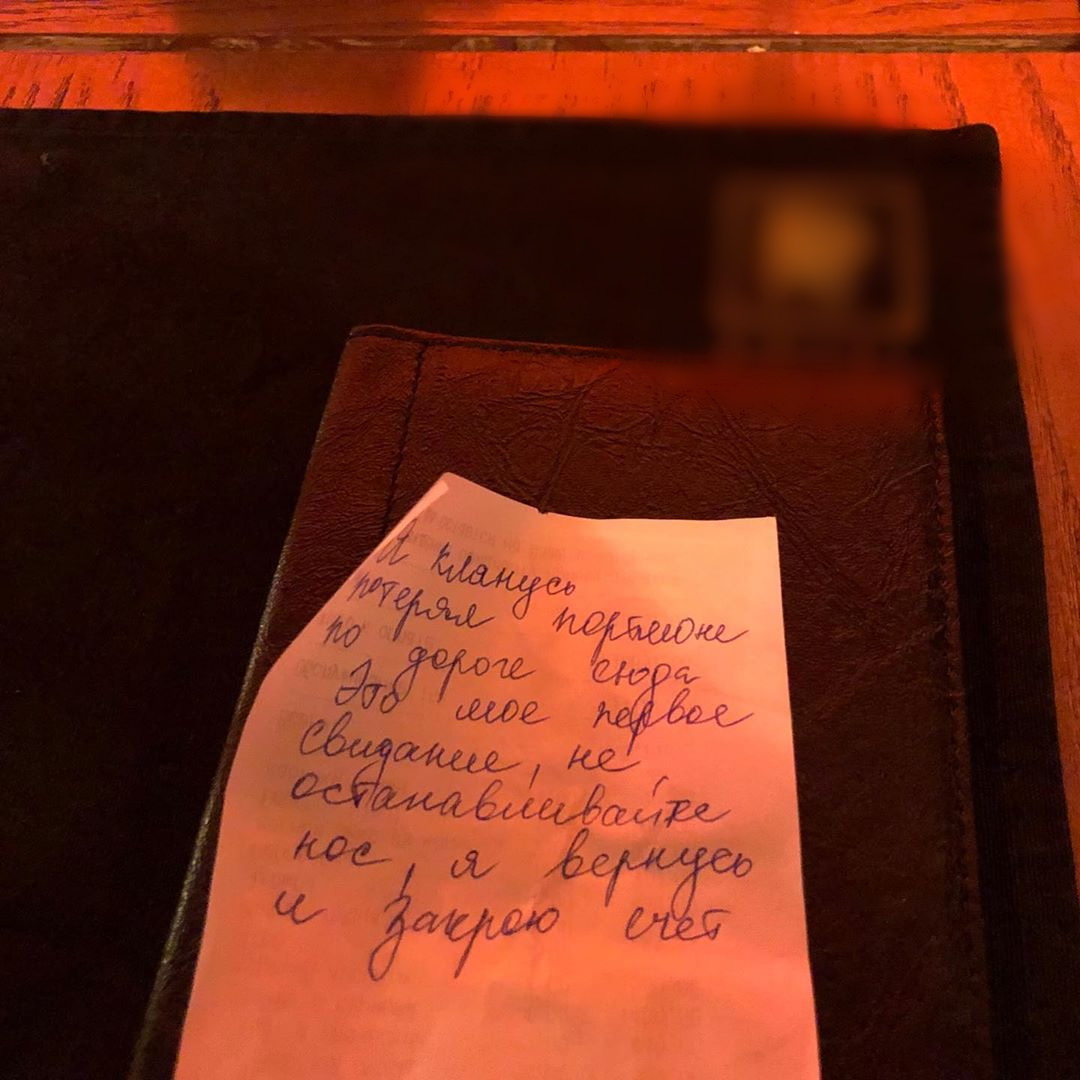 Я клянусь
потерял портмоне
по дороге сюда
Это мое первое
свидание, не
останавливайте
нос, я вернусь
и закрою счет